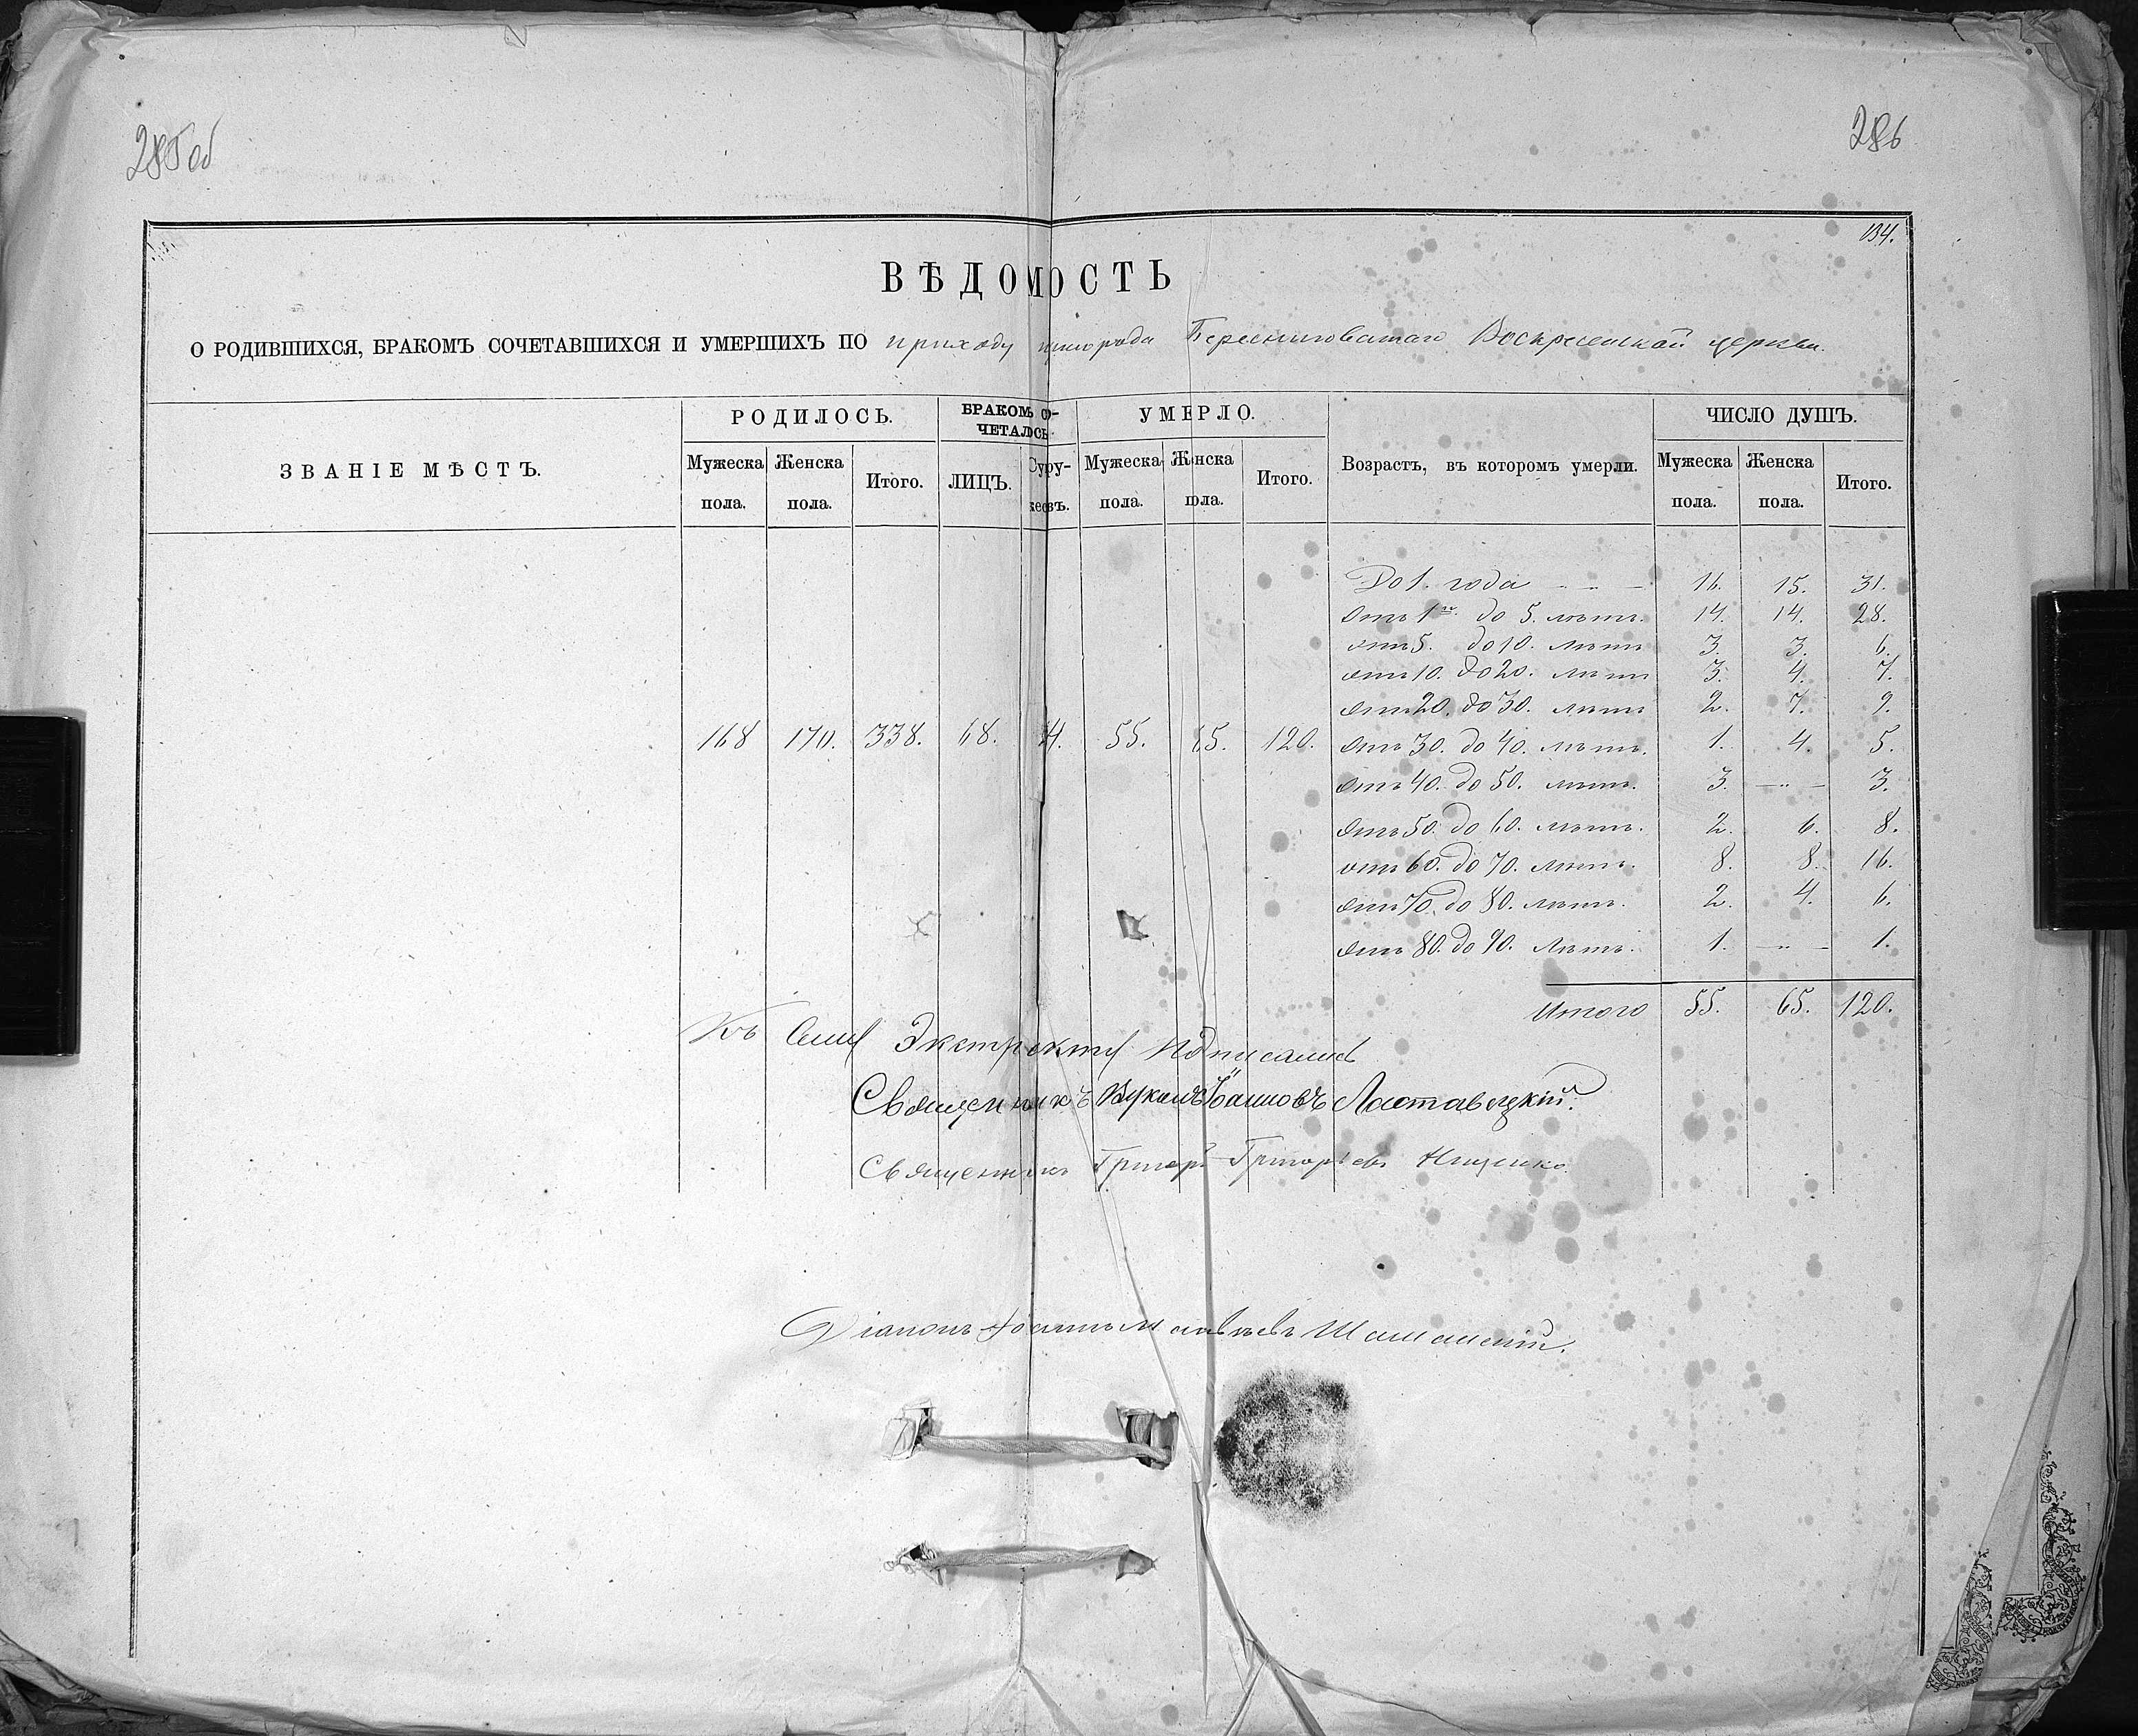 285 об
286
134.
ВѢДОМОСТЬ
О РОДИВШИХСЯ, БРАКОМЪ СОЧЕТАВШИХСЯ И УМЕРШИХЪ ПО приходу пригорода Березниговатаго Воскресенской церкви.
ЗВАНІЕ МѢСТЪ.
РОДИЛОСЬ.
БРАКОМЪ СО-
ЧЕТАЛОСЬ
УМЕРЛО.
Возрастъ, въ которомъ умерли.
ЧИСЛО ДУШЪ.
Мужеска пола. Женска пола. Итого. ЛИЦЪ. Супру-жествъ. Мужеска пола. Женска пола. Итого. Мужеска пола. Женска пола. Итого.
До 1. года 16. 15. 31.
Отъ 1го. до 5. лѣтъ. 14. 14. 28.
отъ 5. до 10. лѣтъ 3. 3. 6.
отъ 10. до 20. лѣтъ 3. 4. 7.
отъ 20. до 30. лѣтъ 2. 7. 9.
168 170. 338. 68. 34. 55. 65. 120. Отъ 30. до 40. лѣтъ. 1. 4. 5.
отъ 40. до 50. лѣтъ. 3. — „ — 3.
отъ 50. до 60. лѣтъ. 2. 6. 8.
отъ 60. до 70. лѣтъ. 8. 8. 16.
отъ 70. до 80. лѣтъ. 2. 4. 6.
отъ 80. до 90. лѣтъ. 1. — „ — 1.
Итого 55. 65. 120.
Къ Сему Экстракту Подписались
Священникъ Вуколъ Іоанновъ Лоставецкій.
Священникъ Григорій Григорьевъ Нищенко.
Діаконъ Іоаннъ Матвѣевъ